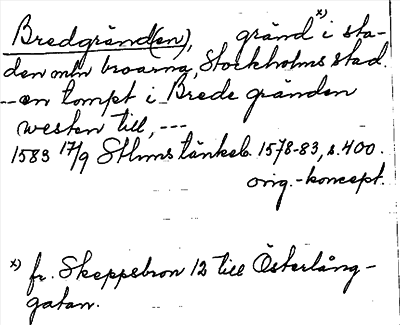 Bredgränd(en), gränd x) i sta-
den mln broarna, Stockholms stad.
--en tompt i Brede gränden
westen till, ---
1583 17/9 Sthms tänkeb. 1578-83, s. 400.
orig.-koncept.
x) fr. Skeppsbron 12 till Österlång-
gatan.